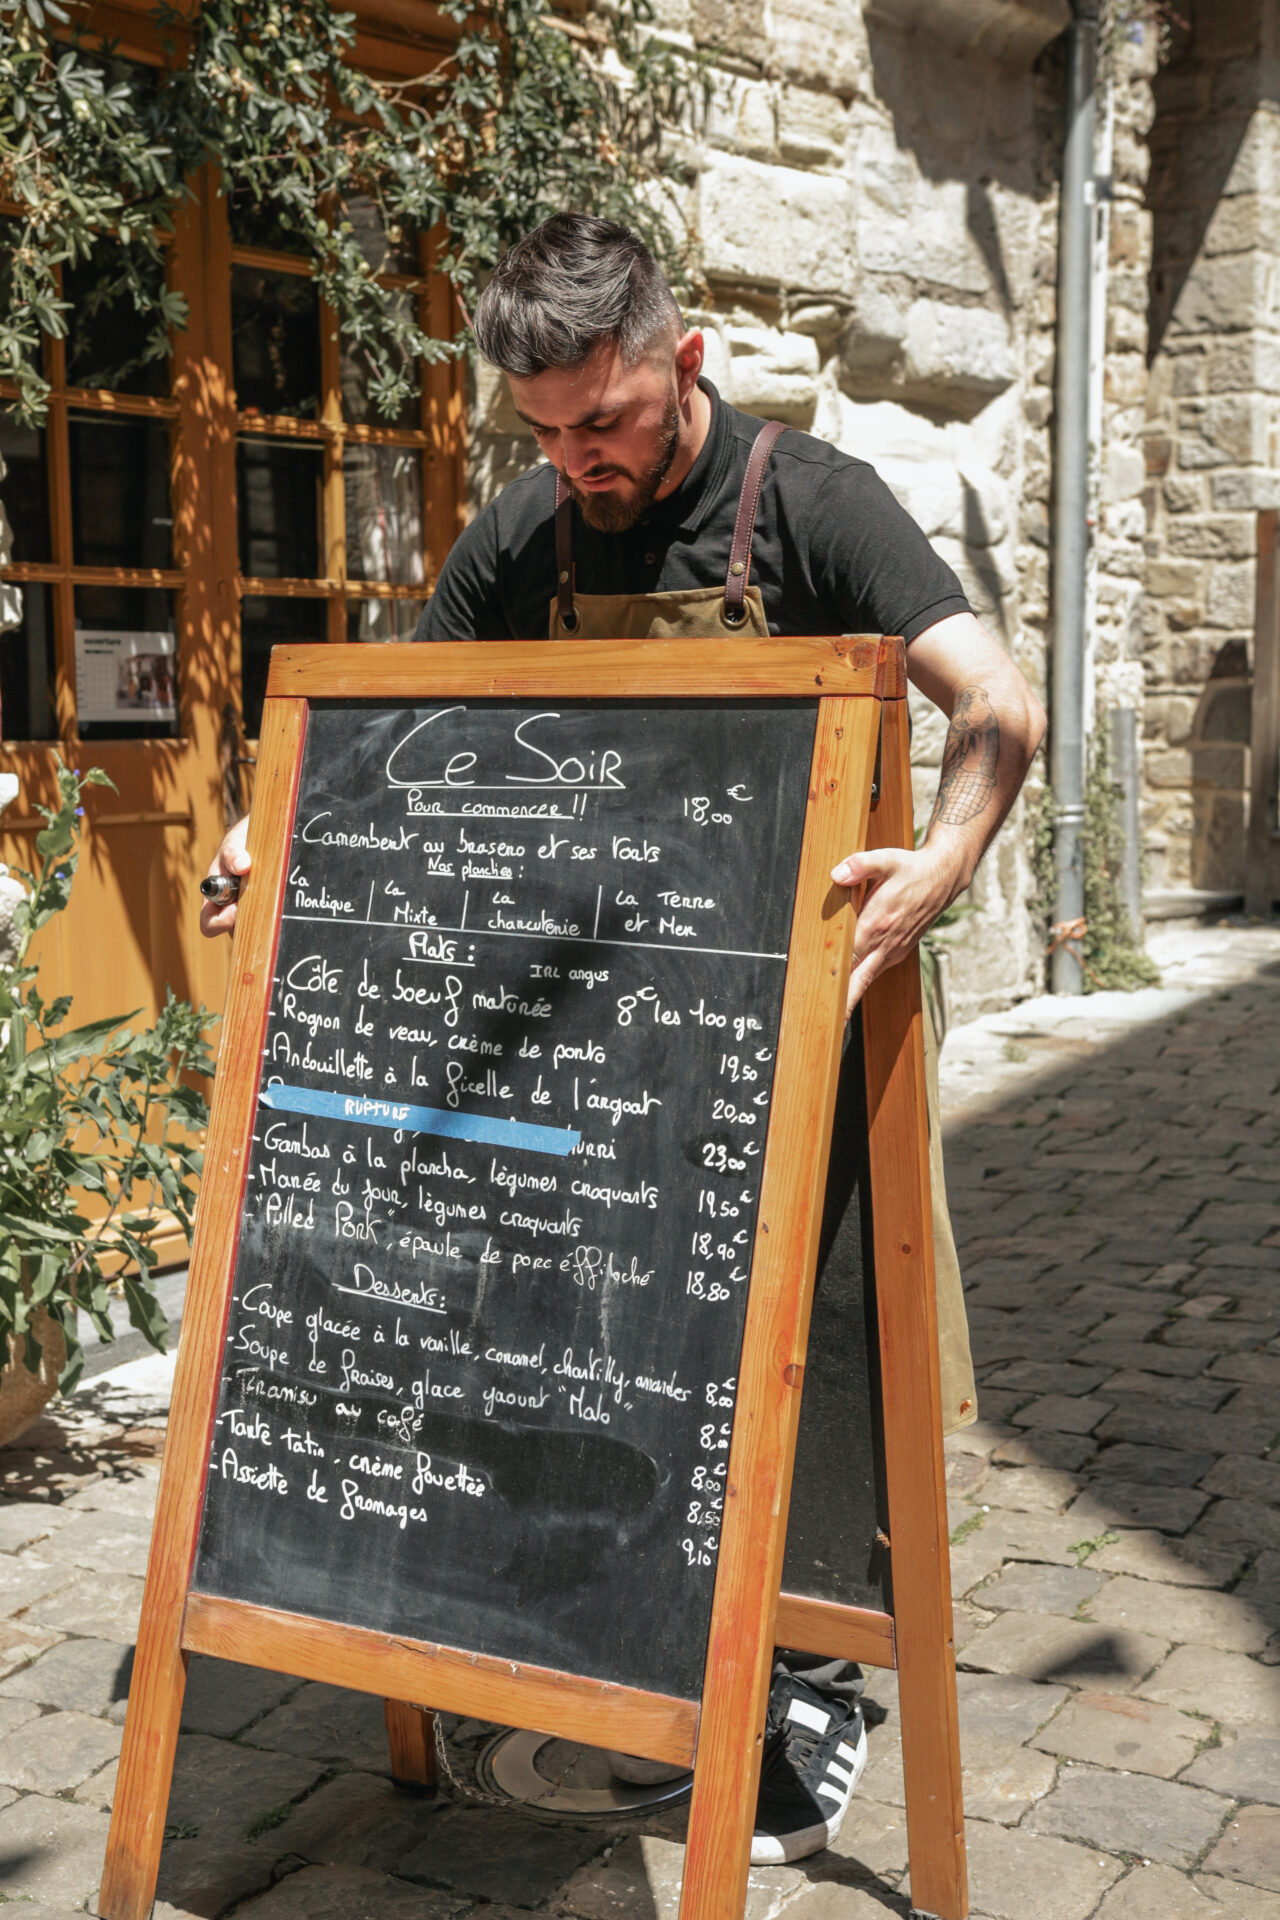 Ce Soir
Pour commencer !!
- Camembert au brasero et ses toats 18,00€
Nos planches :
La Nordique | La Mixte | La charcuterie | La Terre et Mer
Plats :
IRL angus
- Côte de boeuf maturée 8€ les 100 gr
- Rognon de veau, crème de porto 19,50€
- Andouillette à la ficelle de l'argoat 20,00€
RUPTURE
urri 23,00€
- Gambas à la plancha, légumes croquants 19,50€
- Marée du jour, légumes croquants 18,90€
- "Pulled Pork", épaule de porc éffiloché 18,80€
Desserts :
- Coupe glacée à la vanille, caramel, chantilly, amandes 8,00€
- Soupe de fraises, glace yaourt "Malo" 8,00€
- Tiramisu au café 8,00€
- Tarte tatin, crème fouettée 8,50€
- Assiette de fromages 9,10€
ouverture